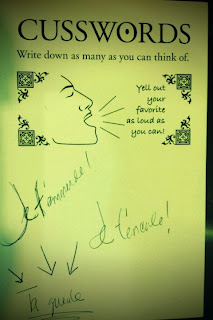 CUSSWORDS
Write down as many as you can think of.
Yell out
your
favorite
as loud as
you can!
Je t'emmerde!
Je t'encule!
Ta gueule